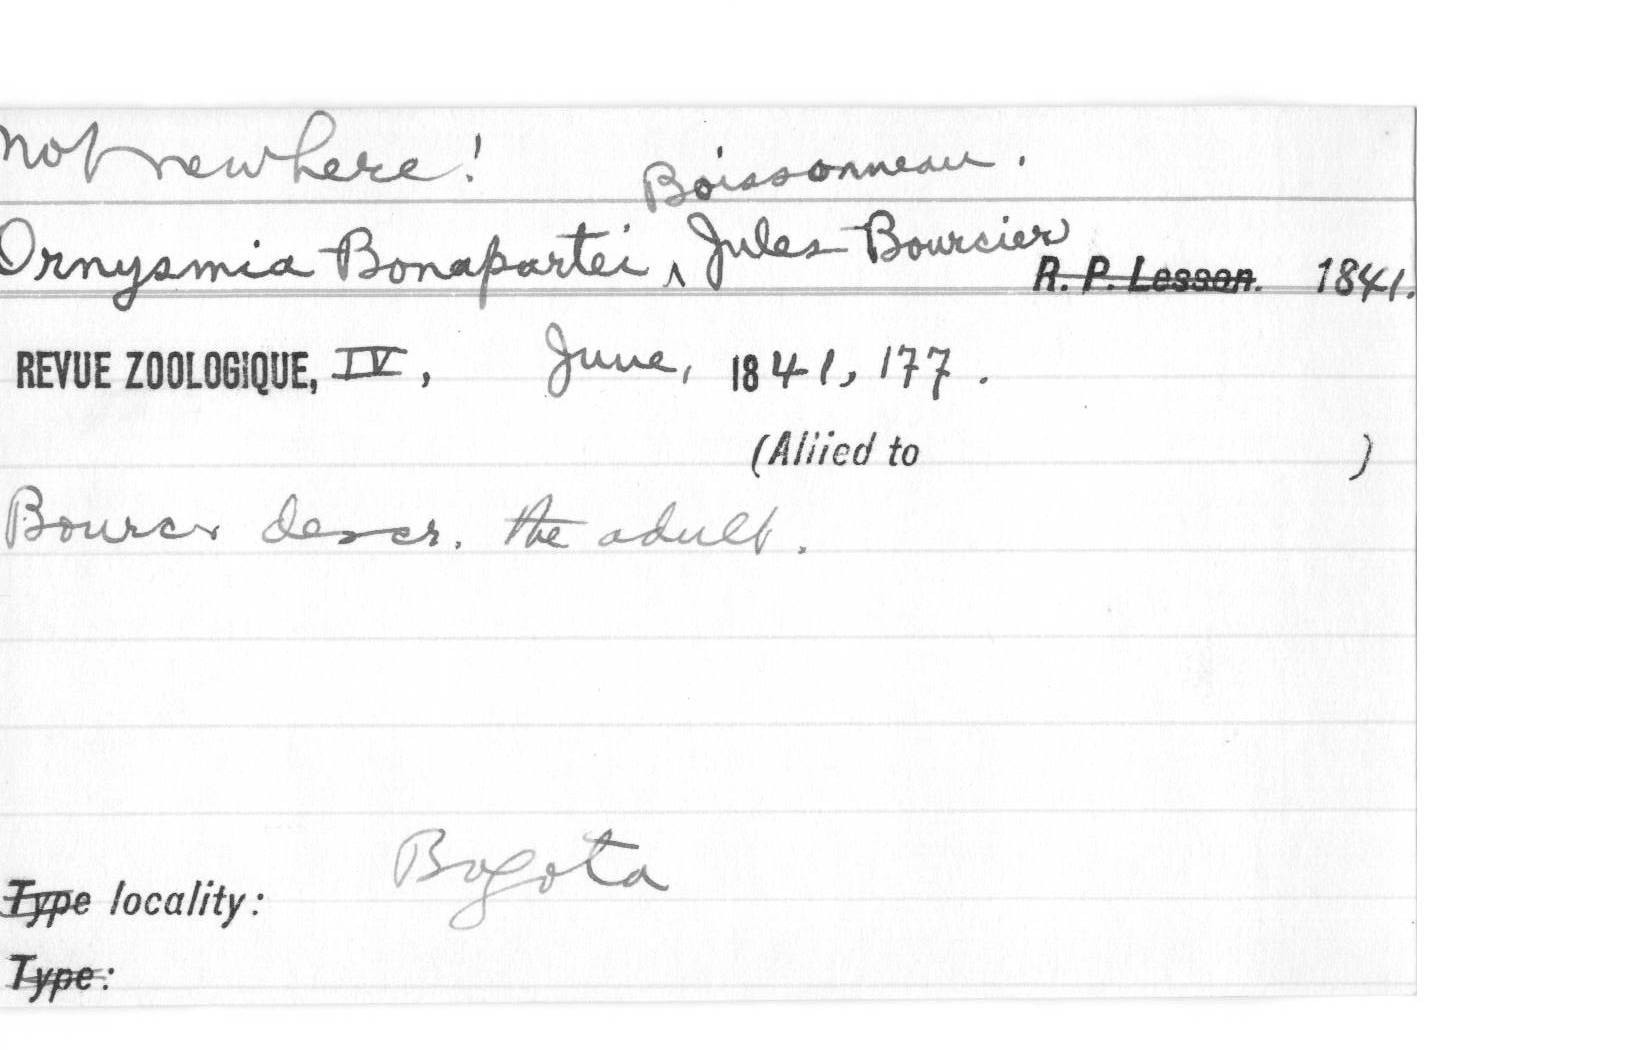 not new here! Boissonneau.
Ornysmia Bonapartei, ^ Jules Bourcier R. P. Lesson. 1841.
REVUE ZOOLOGIQUE, IV, June, 1841, 177.
(Allied to )
Bourcr descr. the adult.
Bogota
Type locality:
Type: